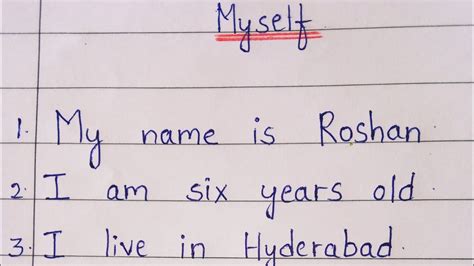 Myself
1. My name is Roshan.
2. I am six years old.
3. I live in Hyderabad.